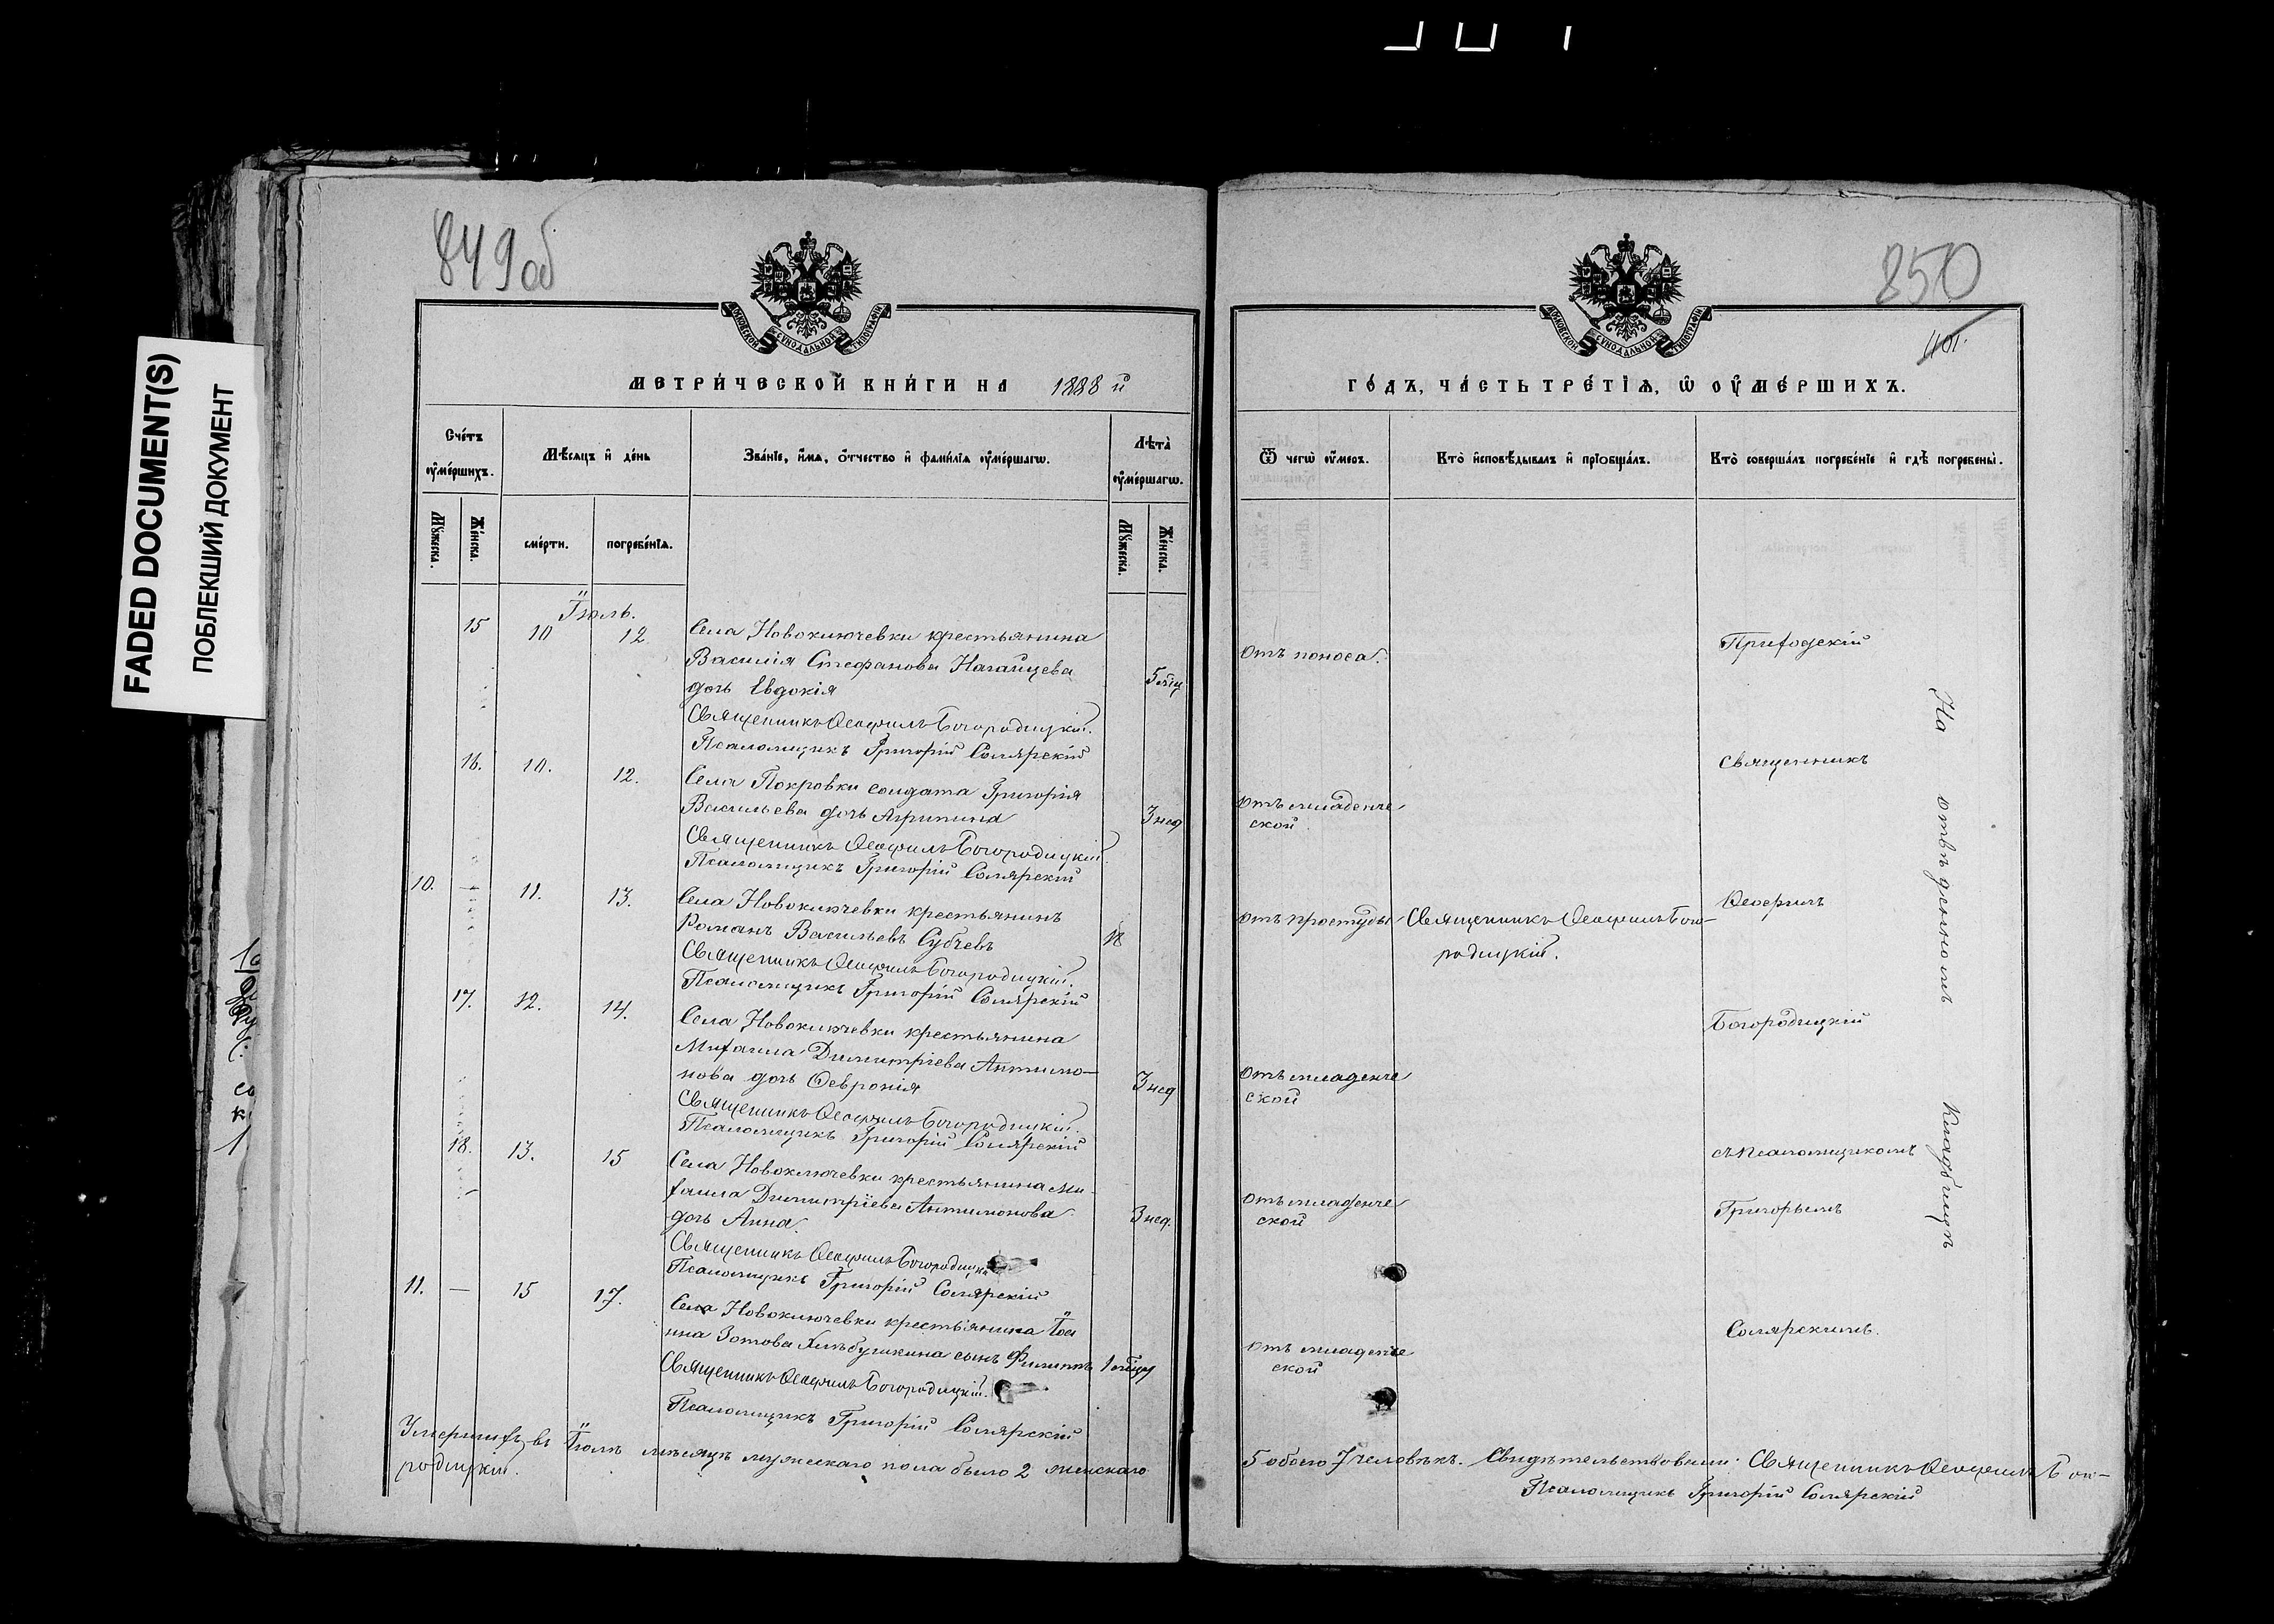 FADED DOCUMENT(S)
ПОБЛЕКШИЙ ДОКУМЕНТ
849 об
МОСКОВСКОЙ СУНОДАЛЬНОЙ ТИПОГРАФІИ
МЕТРИ́ЧЕСКОЙ КНИ́ГИ НА 1888 й
Сче́тъ оу҆ме́ршихъ.
Мѣ́сяцъ и҆ де́нь
Зва́нїе, и҆́мѧ, ѻ҆́тчество и҆ фами́лїѧ оу҆ме́ршагѡ.
Лѣ́та оу҆ме́ршагѡ.
Мꙋ́жеска.
Же́нска.
сме́рти.
погребе́нїѧ.
Мꙋ́жеска.
Же́нска.
Іюль.
15 10 12 Села Новоключевки крестьянина
Василія Стефанова Нагайцева
дочь Евдокія 5 мц
Священникъ Ѳеофилъ Богородицкій.
Псаломщикъ Григорій Солярскій
16. 10. 12. Села Покровки солдата Григорія
Васильева дочь Агрипина 3 нед
Священникъ Ѳеофилъ Богородицкій
Псаломщикъ Григорій Солярскій
10. — 11. 13. Села Новоключевки крестьянинъ
Романъ Васильевъ 18
Священникъ Ѳеофилъ Богородицкій.
Псаломщикъ Григорій Солярскій
17. 12. 14. Села Новоключевки крестьянина
Михаила Димитріева Антимо-
нова дочь Ѳевронія 3 нед
Священникъ Ѳеофилъ Богородицкій.
Псаломщикъ Григорій Солярскій
18. 13. 15 Села Новоключевки крестьянина Ми-
хаила Димитріева Антимонова
дочь Анна 3 нед.
Священникъ Ѳеофилъ Богородицкій
Псаломщикъ Григорій Солярскій
11. — 15 17. Села Новоключевки крестьянина Іоа
нна Зотова сынъ Филиппъ 1 мцъ
Священникъ Ѳеофилъ Богородицкій.
Псаломщикъ Григорій Солярскій
Умершихъ въ Іюлѣ мѣсяцѣ мужескаго пола было 2 женскаго
родицкій.
850
401.
МОСКОВСКОЙ СУНОДАЛЬНОЙ ТИПОГРАФІИ
ГО́ДЪ, ЧА́СТЬ ТРЕ́ТЇѦ, Ѡ҆ ОУ҆МЕ́РШИХЪ.
Ѿ чегѡ̀ оу҆́меръ.
Кто̀ и҆сповѣ́дывалъ и҆ прїобща́лъ.
Кто̀ соверша́лъ погребе́нїе и҆ гдѣ̀ погребены̀.
Отъ поноса.
Приходскій
Священникъ
отъ младенче
ской
Ѳеофилъ
отъ простуды Священникъ Ѳеофилъ Бого-
родицкій.
Богородицкій
Отъ младенче
ской
съ псаломщикомъ
отъ младенче
ской
Григорьемъ
Солярскимъ.
отъ младенче
ской
На отведенномъ кладбищѣ
5 обоего 7 человѣкъ. Свидѣтельствовали: Священникъ Ѳеофилъ Бого-
Псаломщикъ Григорій Солярскій